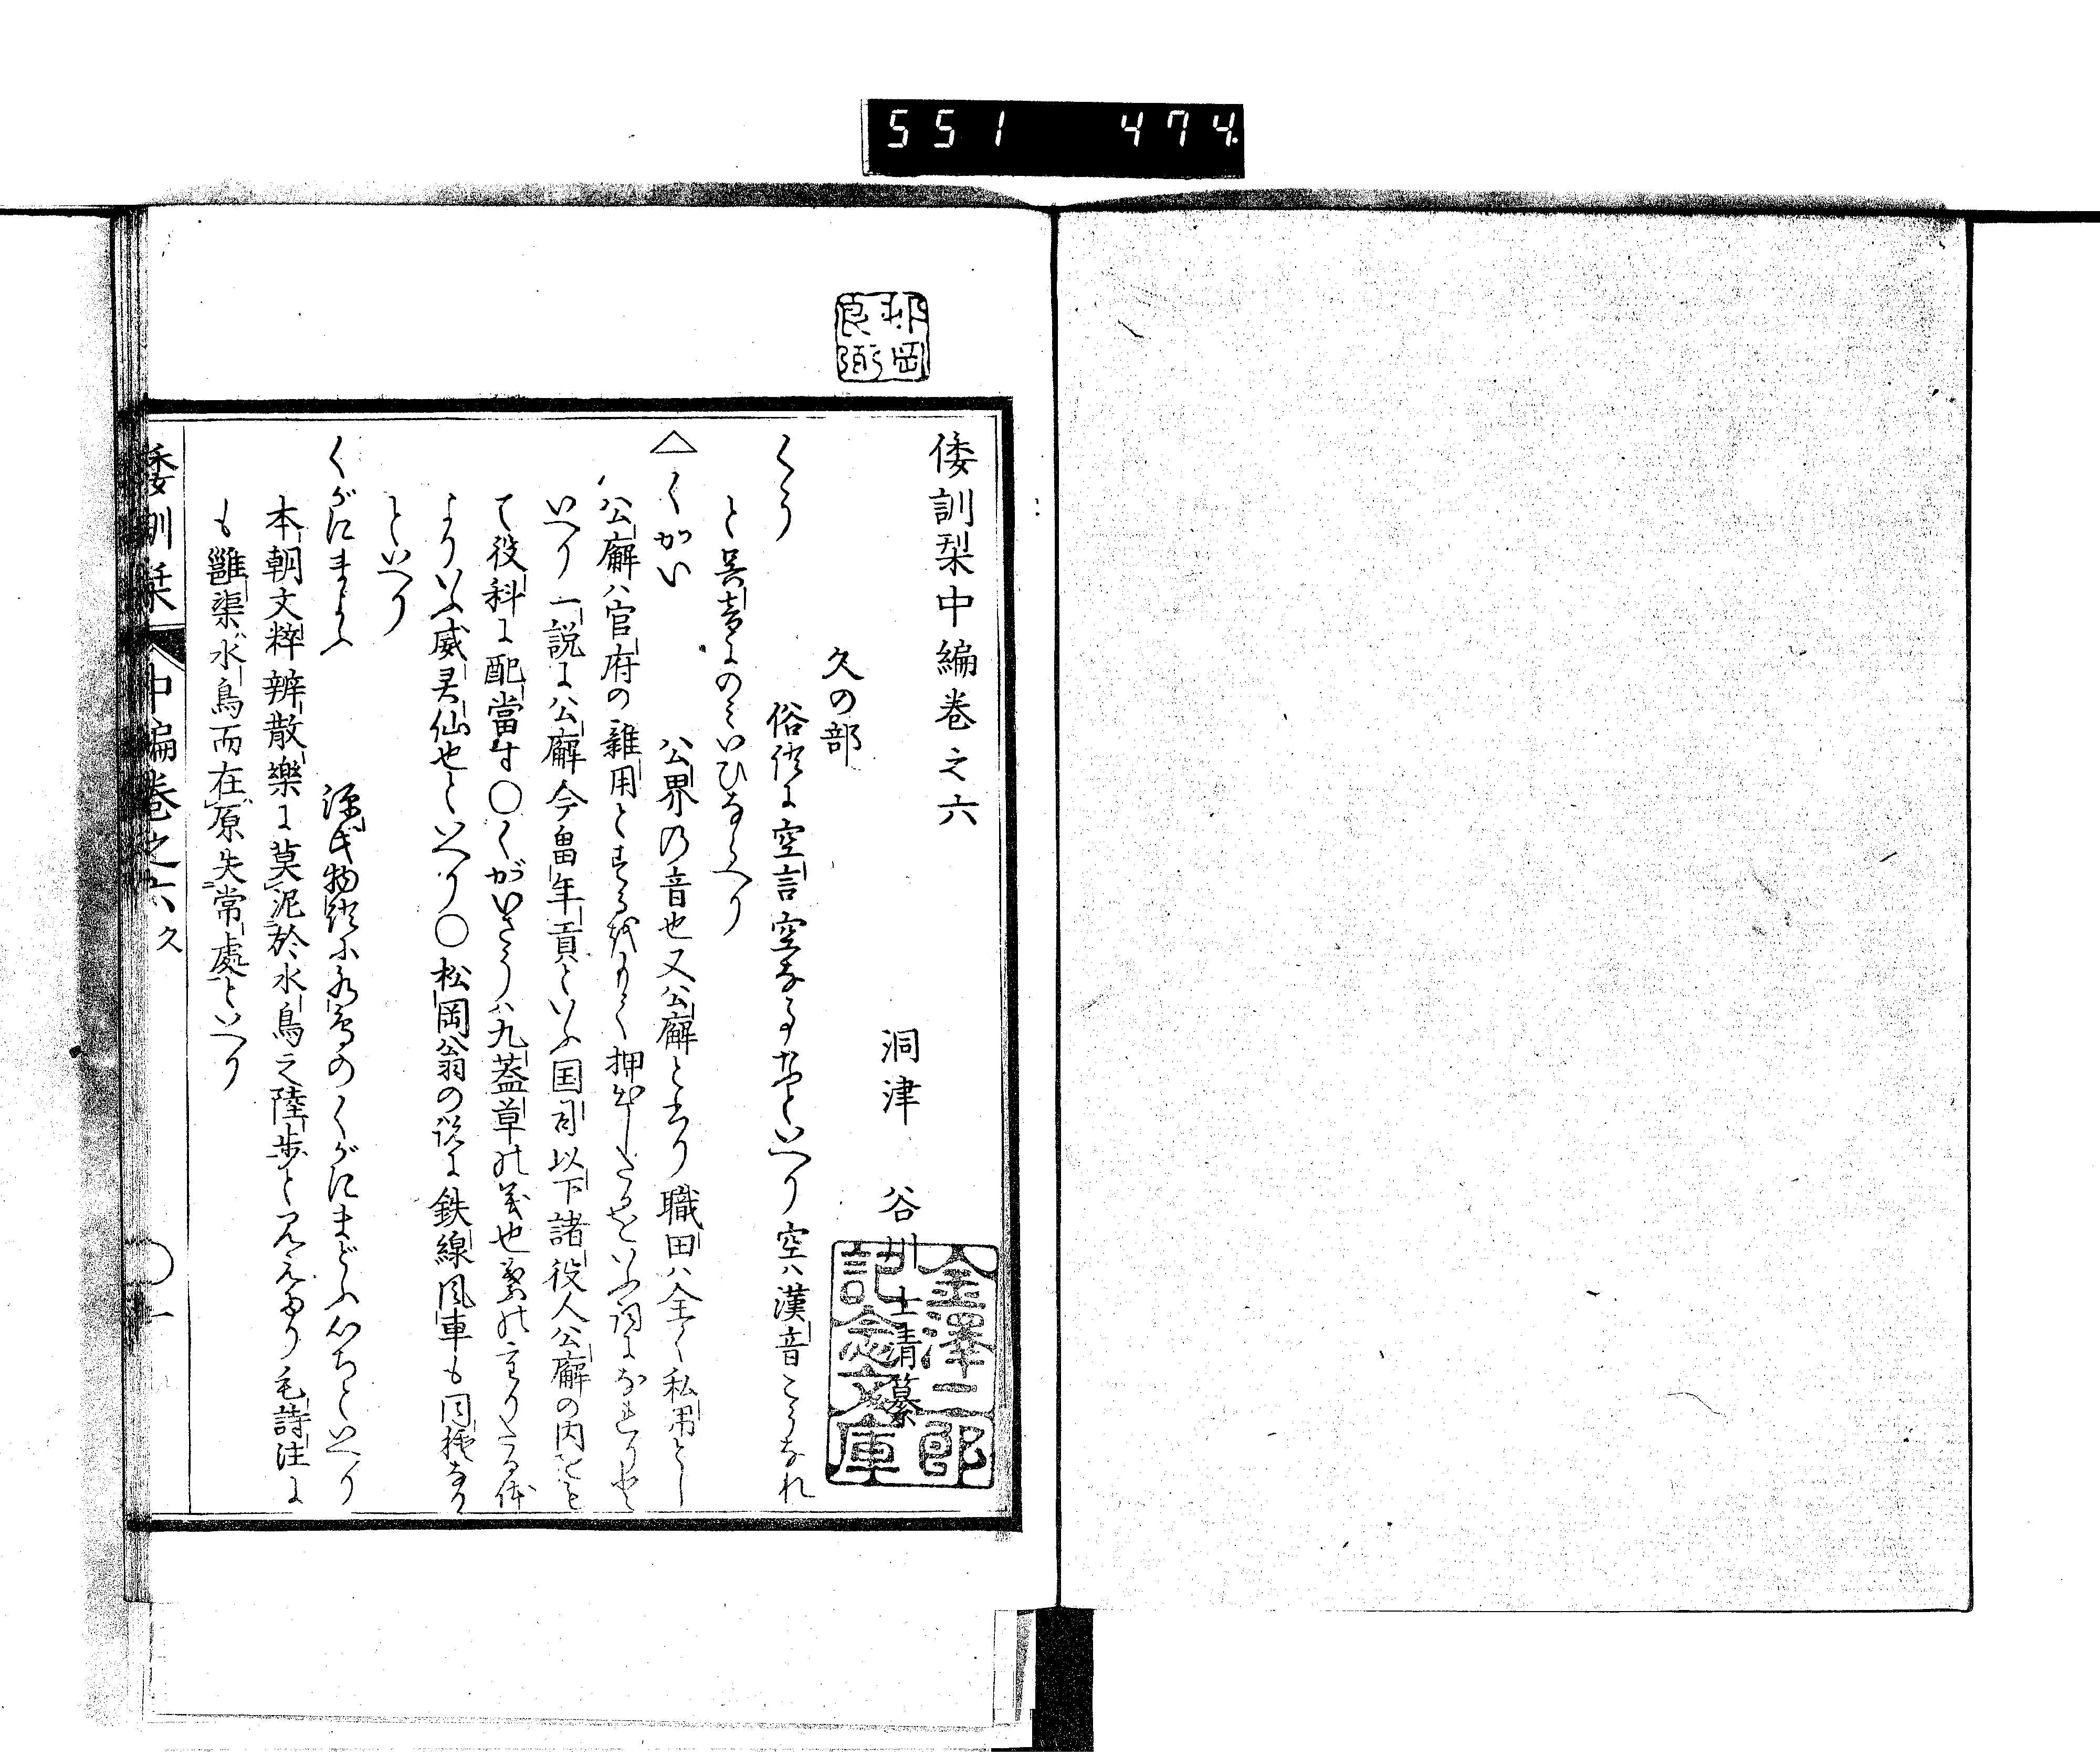 551 474
倭訓栞中編巻之六
洞津 谷川士清纂
久の部
くう 俗語に空言空なる事なといへり空ハ漢音こうなれ
と呉音にのミいひならへり
△くがい 公界の音也又公廨とも書り職田ハ全く私用とし
公廨ハ官府の雑用とする故に押出したるをいふ詞に
いへり一説に公廨今畠年貢といふ国司以下諸役人公廨の内をも
て役科に配當す○くがいさうハ九蓋草の義也葉の重りたる体
よりいふ威灵仙也といへり○松岡翁の説に鉄線風車も同種なり
といへり
くがにまよふ 源氏物語に水鳥のくがにまどふ心ちといへり
本朝文粹辨散樂に莫泥於水鳥之陸歩と見えたり毛詩注に
も雝渠水鳥而在原失常處といへり
倭訓栞 中編巻之六 久 ○一
金澤
記念文庫